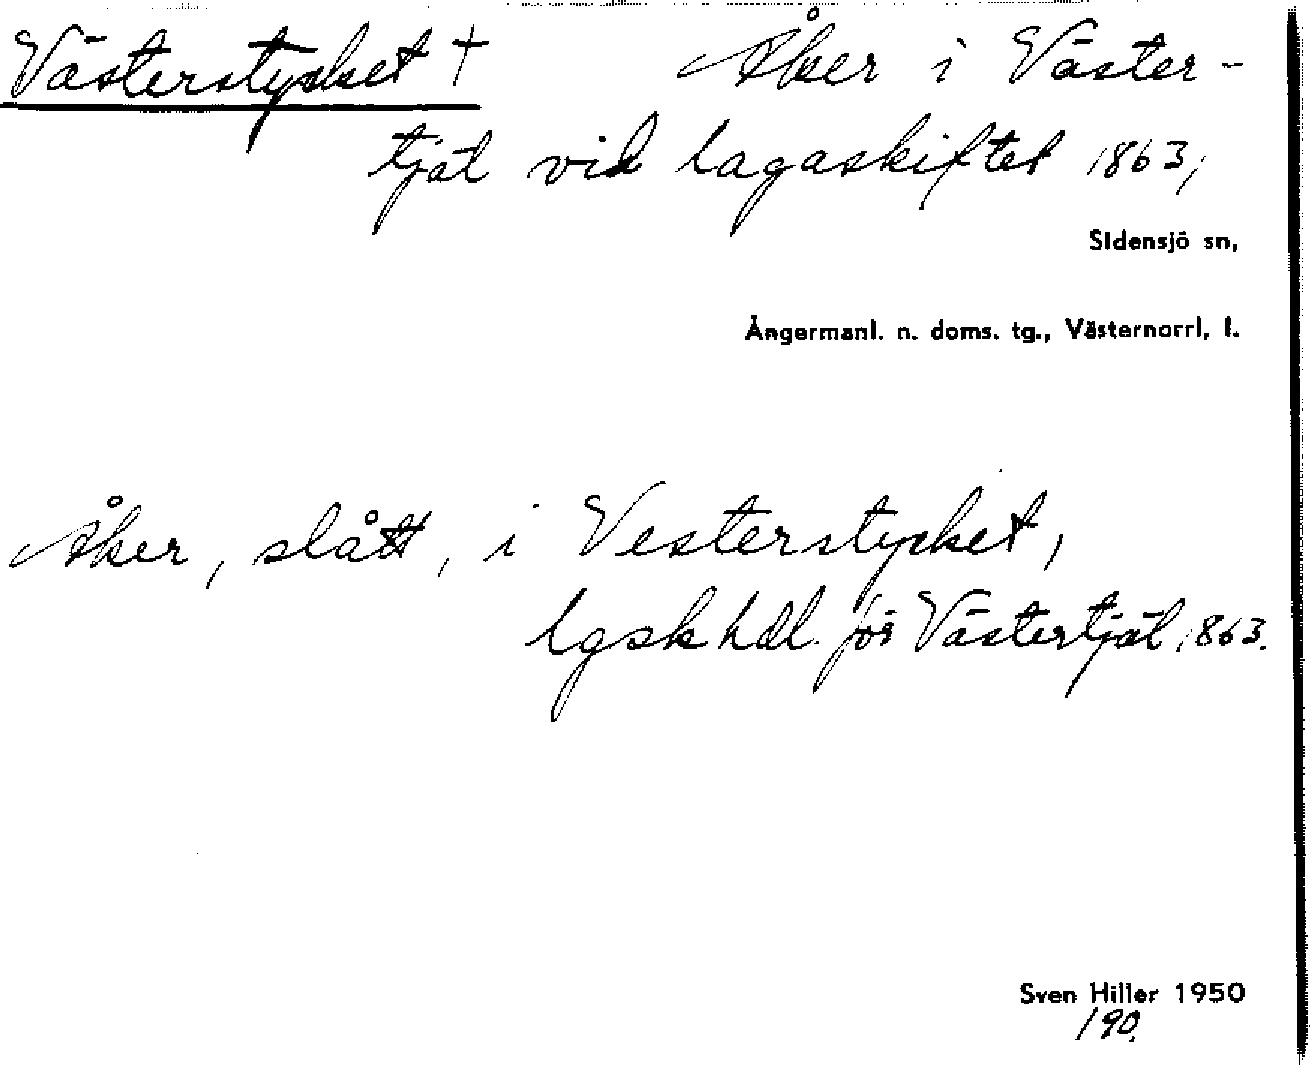 Västerstycket † Åker i Väster-
tjäl vid lagaskiftet 1863,
Sidensjö sn,
Ångermanl. n. doms. tg., Västernorrl. l.
Åker, slått, i Vesterstycket,
lgskhdl. för Västertjäl 1863.
Sven Hiller 1950
190.